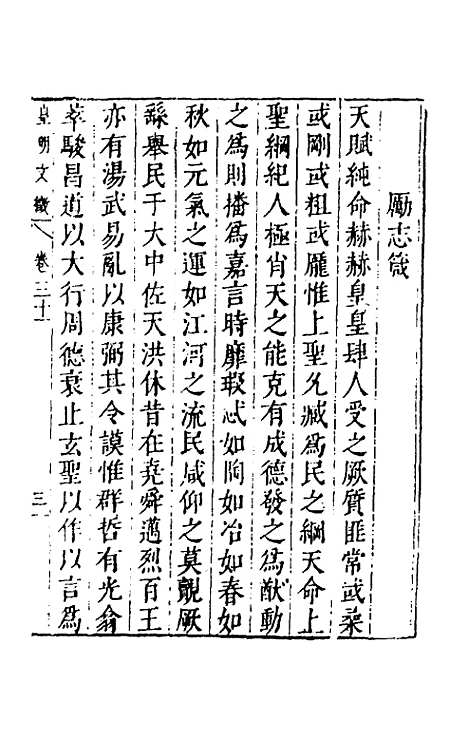 勵志箴
天賦純命赫赫皇皇肆人受之厥質匪常或柔
或剛或粗或厖惟上聖允臧為民之綱天命上
聖綱紀人極肖天之能克有成德發之為猷動
之為則播為嘉言時靡瑕忒如陶如冶如春如
秋如元氣之運如江河之流民咸仰之莫覿厥
繇舉民于大中佐天洪休昔在堯舜邁烈百王
亦有湯武易亂以康弼其令謨惟群哲有光翕
萃駿昌道以大行周德衰止玄聖以作以言為
皇明文徵 卷三十 三